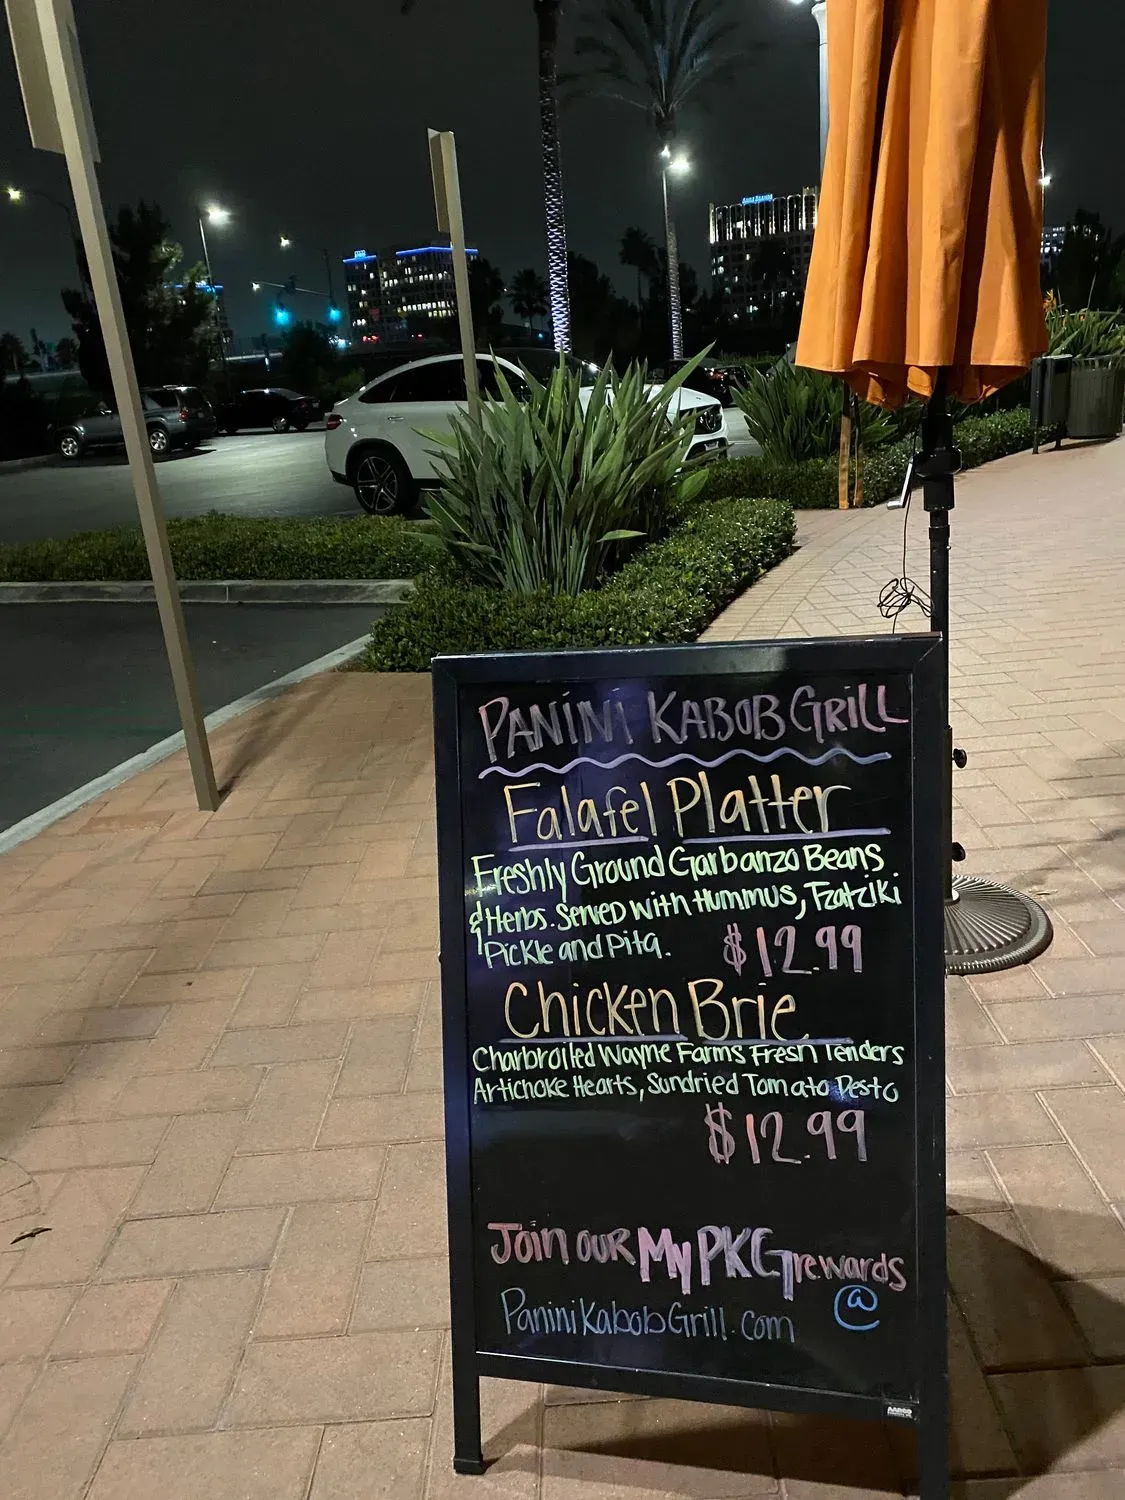 PANINI KABOB GRILL
Falafel Platter
Freshly Ground Garbanzo Beans
& Herbs. Served with Hummus, Tzatziki
Pickle and Pita.
$12.99
Chicken Brie
Charbroiled Wayne Farms Fresh Tenders
Artichoke Hearts, Sundried Tomato Pesto
$12.99
Join our My PKG rewards
@
PaniniKabobGrill.com